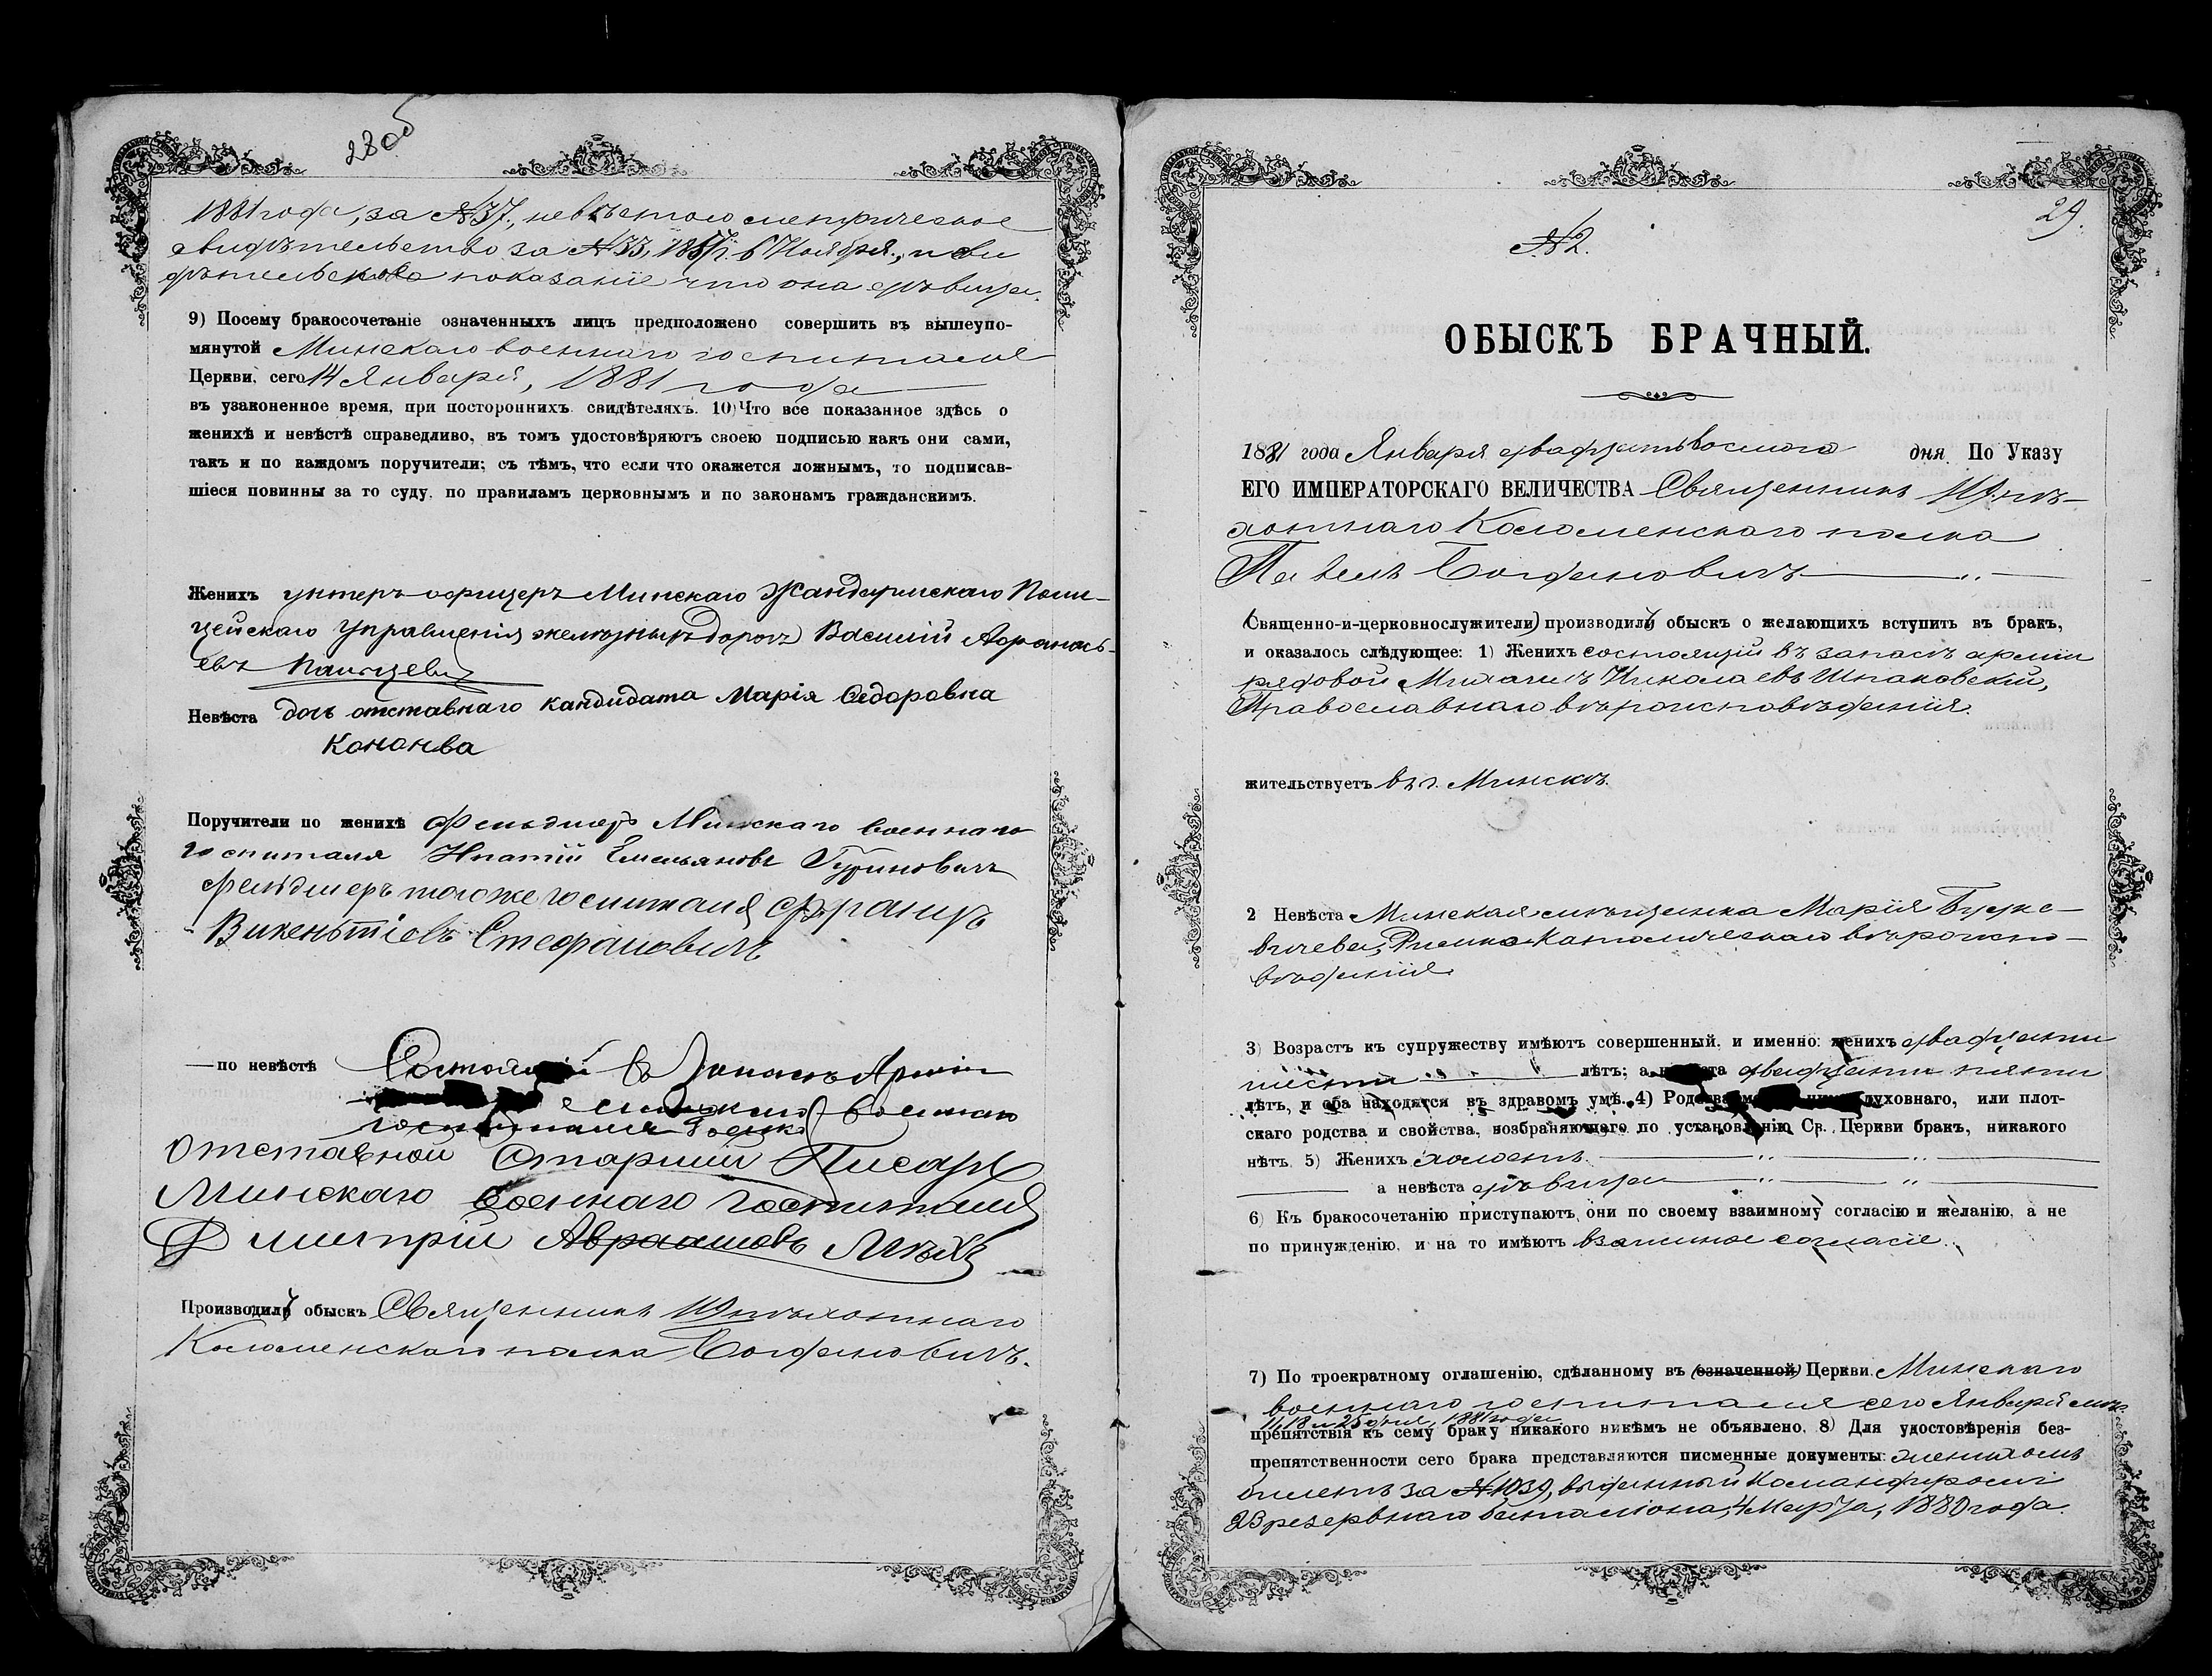 28об
1881 года, за №37, невѣстою метрическое
свидѣтельство за №33, 6 Ноября, и сви
дѣтельское показаніе что она дѣвица.
9) Посему бракосочетаніе означенныхъ лицъ предположено совершить въ вышеупо-
мянутой Минскаго военнаго госпиталя
Церкви, сего 14 Января, 1881 года
въ узаконенное время, при постороннихъ свидѣтеляхъ. 10) Что все показанное здѣсь о
женихѣ и невѣстѣ справедливо, въ томъ удостовѣряютъ своею подписью какъ они сами,
такъ и по каждомъ поручители; съ тѣмъ, что если что окажется ложнымъ, то подписав-
шіеся повинны за то суду, по правиламъ церковнымъ и по законамъ гражданскимъ.
Женихъ унтеръ-офицеръ Минскаго Жандармскаго Поли-
цейскаго Управленія желѣзныхъ дорогъ Василій Афонась-
евъ
Невѣста дочь отставнаго кандидата Марія Ѳедоровна
Кононва
Поручители по женихѣ Фельдшеръ Минскаго военнаго
госпиталя Ипатій Емельяновъ Гуриновичъ
фельдшеръ тогоже госпиталя Францъ
Викентіевъ Стефановичъ
— по невѣстѣ Состоящій въ Запасѣ Арміи
Минскаго военнаго
госпиталя
Отставной Старшій Писарь
Минскаго Военнаго Госпиталя
Димитрій Авраамовъ
Производилъ обыскъ Священникъ 119 пѣхотнаго
Коломенскаго полка Богдановичъ.
29.
№2.
ОБЫСКЪ БРАЧНЫЙ.
1881 года Января двадцать восмого дня По Указу
ЕГО ИМПЕРАТОРСКАГО ВЕЛИЧЕСТВА Священникъ 119 пѣ-
хотнаго Коломенскаго полка
Павелъ Богдановичъ
(Священно-и-церковнослужители) производилъ обыскъ о желающихъ вступить въ бракъ,
и оказалось слѣдующее: 1) Женихъ состоящій въ запасѣ арміи
рядовой Михаилъ Николаевъ Шпаковскій,
Православнаго вѣроисповѣданія.
жительствуетъ въ г. Минскѣ.
2 Невѣста Минская мѣщанка Марія Буцке-
вичева, Римско-Католическаго вѣроиспо-
вѣданія
3) Возрастъ къ супружеству имѣютъ совершенный, и именно: женихъ двадцати
шести лѣтъ; а невѣста двадцати пяти
лѣтъ, и оба находятся въ здравомъ умѣ. 4) Родства между ними духовнаго, или плот-
скаго родства и свойства, возбраняющаго по установленію Св. Церкви бракъ, никакого
нѣтъ. 5) Женихъ холостъ
а невѣста дѣвица
6) Къ бракосочетанію приступаютъ они по своему взаимному согласію и желанію, а не
по принужденію, и на то имѣютъ взаимное согласіе.
7) По троекратному оглашенію, сдѣланному въ (означенной) Церкви Минскаго
военнаго госпиталя сего Января мѣс.
11, 18 и 25 дня, 1881 года
препятствія къ сему браку никакого никѣмъ не объявлено. 8) Для удостовѣренія без-
препятственности сего брака представляются писменные документы: женихомъ
билетъ за №1039, выданный Командиромъ
23 резервнаго баталіона, 4 Марта, 1880 года.